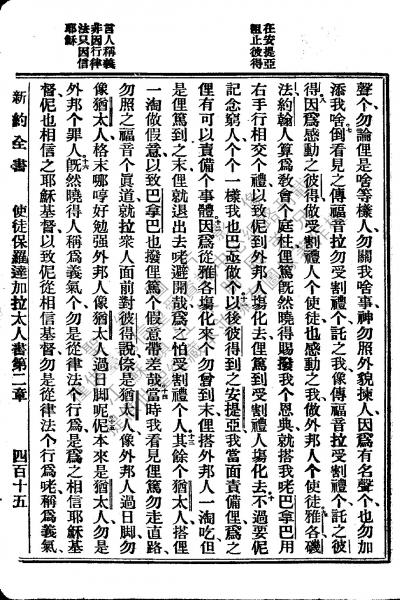 在安提亞
阻止彼得
言人稱義
非因行律
法只因信
耶穌
聲个、勿論俚是啥等樣人、勿關我啥事、神勿照外貌揀人、因爲有名聲个、也勿加
添我啥、倒看見之傳福音拉勿受割禮个、託之我、像傳福音拉受割禮个、託之彼
得、因爲感動之彼得做受割禮人个使徒、也感動之我做外邦人个使徒、雅各磯
法約翰、人算爲敎會个庭柱、俚篤旣然曉得賜撥我个恩典、就搭我咾巴拿巴用
右手行相交个禮、以致伲到外邦人塲化去、俚篤到受割禮人塲化去、不過要伲
記念窮人、个个一樣我也巴亟做个、以後彼得到之安提亞、我當面責備俚、爲之
俚有可以責備个事體、因爲從雅各塲化來个、勿曾到末、俚搭外邦人一淘吃、但
是俚篤到之末、俚就退出去咾避開哉、爲之怕受割禮个人、其餘个猶太人、搭俚
一淘做假意、以致巴拿巴也撥俚篤个假意帶差哉、當時我看見俚篤勿走直路、
勿照之福音个眞道、就拉衆人面前對彼得說、倷是猶太人、像外邦人過日脚、勿
像猶太人、格末哪哼好勉强外邦人像猶太人過日脚呢、伲本來是猶太人、勿是
外邦个罪人、旣然曉得人稱爲義氣个、勿是從律法个行爲、是爲之相信耶穌基
督、伲也相信之耶穌基督、以致伲從相信基督、勿是從律法个行爲咾稱爲義氣、
新約全書　使徒保羅達加拉太人書第二章　四百十五